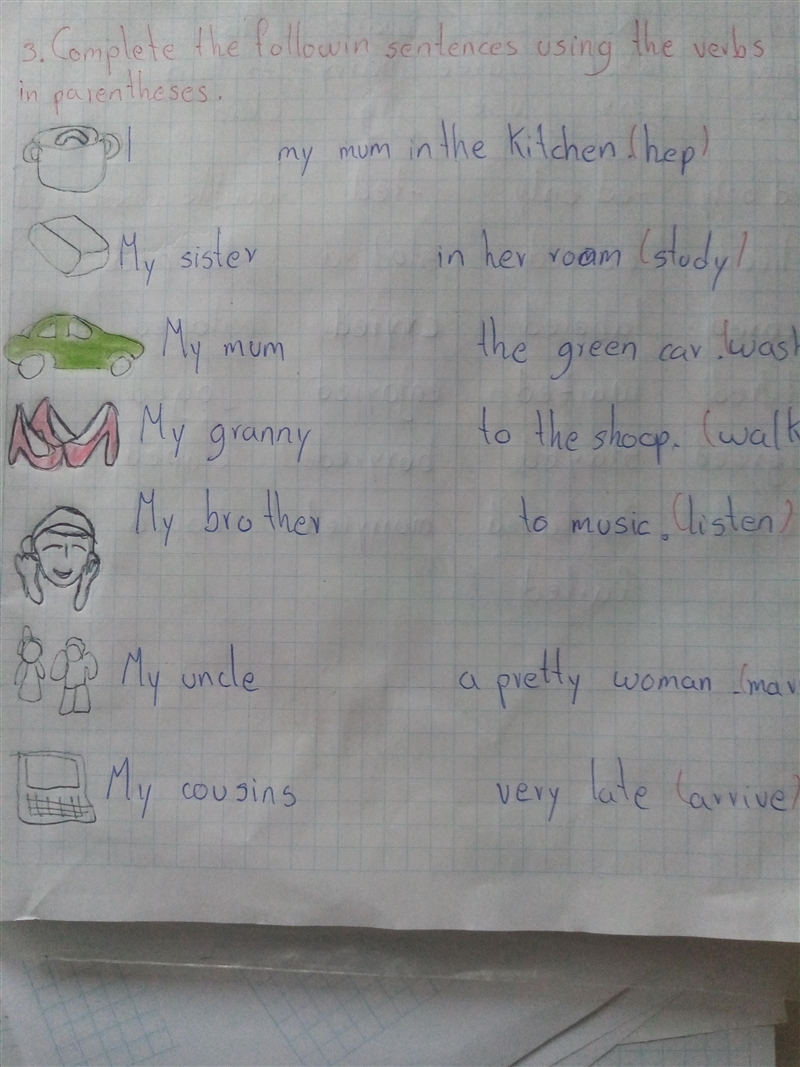 3. Complete the followin sentences using the verbs
in parentheses.
I my mum in the kitchen (hep)
My sister in her room (study)
My mum the green car. (wash
My granny to the shoop. (walk
My brother to music. (listen)
My uncle a pretty woman. (mar
My cousins very late (arrive)